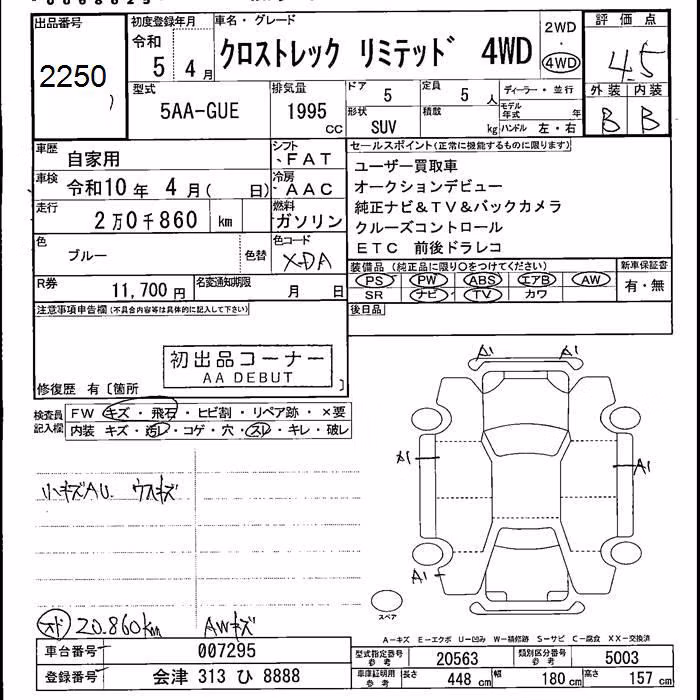 出品番号
2250
初度登録年月
令和 5 4月
車名・グレード
クロストレック リミテッド 4WD
2WD
・
4WD
評価点
4.5
外装 内装
B B
型式
5AA-GUE
排気量
1995
CC
ドア
5
定員
5 人
形状
SUV
積載
kg
ディーラー・並行
モデル
年式 年
ハンドル 左・右
車歴
自家用
シフト
FAT
車検
令和10年 4月( 日)
冷房
AAC
走行
2万0千860 km
燃料
ガソリン
色
ブルー
色替
色コード
XDA
R券
11,700円
名変通知期限
月 日
セールスポイント(正常に機能するものに限ります)
ユーザー買取車
オークションデビュー
純正ナビ&TV&バックカメラ
クルーズコントロール
ETC 前後ドラレコ
装備品(純正品に限り○をつけてください)
PS PW ABS エアB AW
SR ナビ TV カワ
新車保証書
有・無
後日品
注意事項申告欄(不具合内容等は具体的に記入して下さい)
初出品コーナー
AA DEBUT
修復歴 有〔箇所 〕
検査員
記入欄
FW キズ・飛石・ヒビ割・リペア跡・×要
内装 キズ・汚レ・コゲ・穴・スレ・キレ・破レ
小キズAU. ウスキズ
メト 20.860km AWキズ
A1 A1
A1
A1
A1
スペア
A−キズ E−エクボ U−凹み W−補修跡 S−サビ C−腐食 XX−交換済
車台番号
007295
登録番号
会津 313 ひ 8888
型式指定番号
参考
20563
類別区分番号
参考
5003
車庫証明用
参考
長さ
448 cm
幅
180 cm
高さ
157 cm